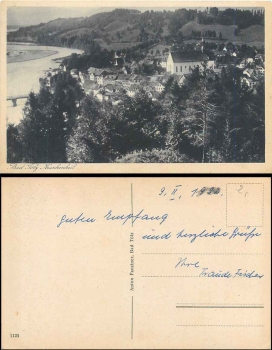 Bad Tölz
9. II.
2.
guten Empfang
und herzliche Grüße
Ihre
Traude Fischer
Anton Pannhans, Bad Tölz
1131